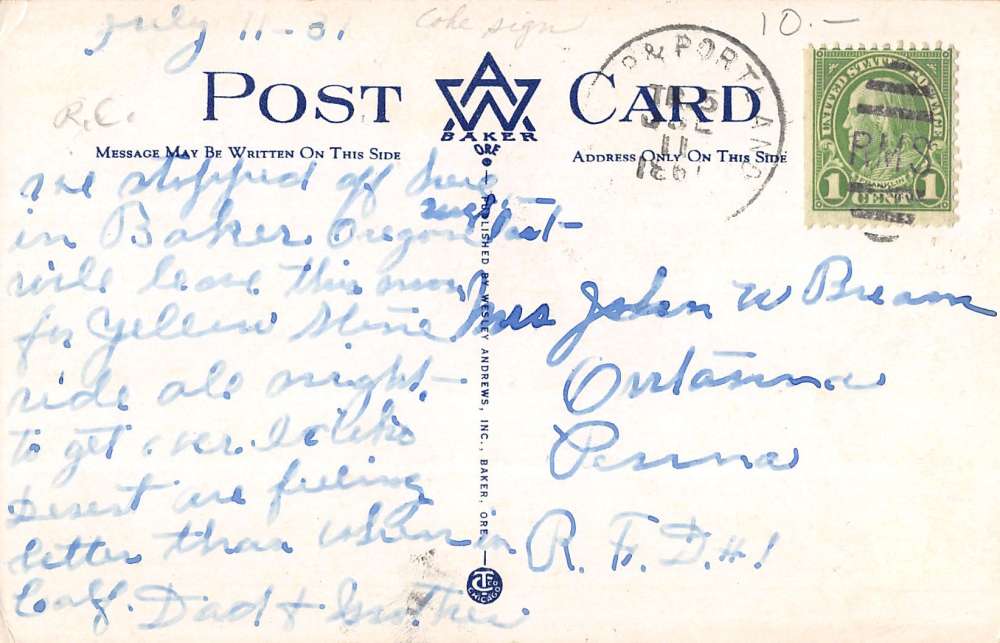 July 11-31
Coke sign
10.-
R.C.
POST CARD
AWA
BAKER
ORE
MESSAGE MAY BE WRITTEN ON THIS SIDE
ADDRESS ONLY ON THIS SIDE
& PORTLAND
TR 5
JUL
11
RMS
UNITED STATES POSTAGE
FRANKLIN
1 CENT 1
we stopped off here
in Baker Oregon last
night
will leave this morn
for Yellow Stone
ride all night
to get over
Desert are feeling
better than when in
Calf. Dad &
PUBLISHED BY WESLEY ANDREWS, INC., BAKER, ORE.
CT CO
CHICAGO
Mrs John W Bream
Ortanna
Penna
R. F. D. #1